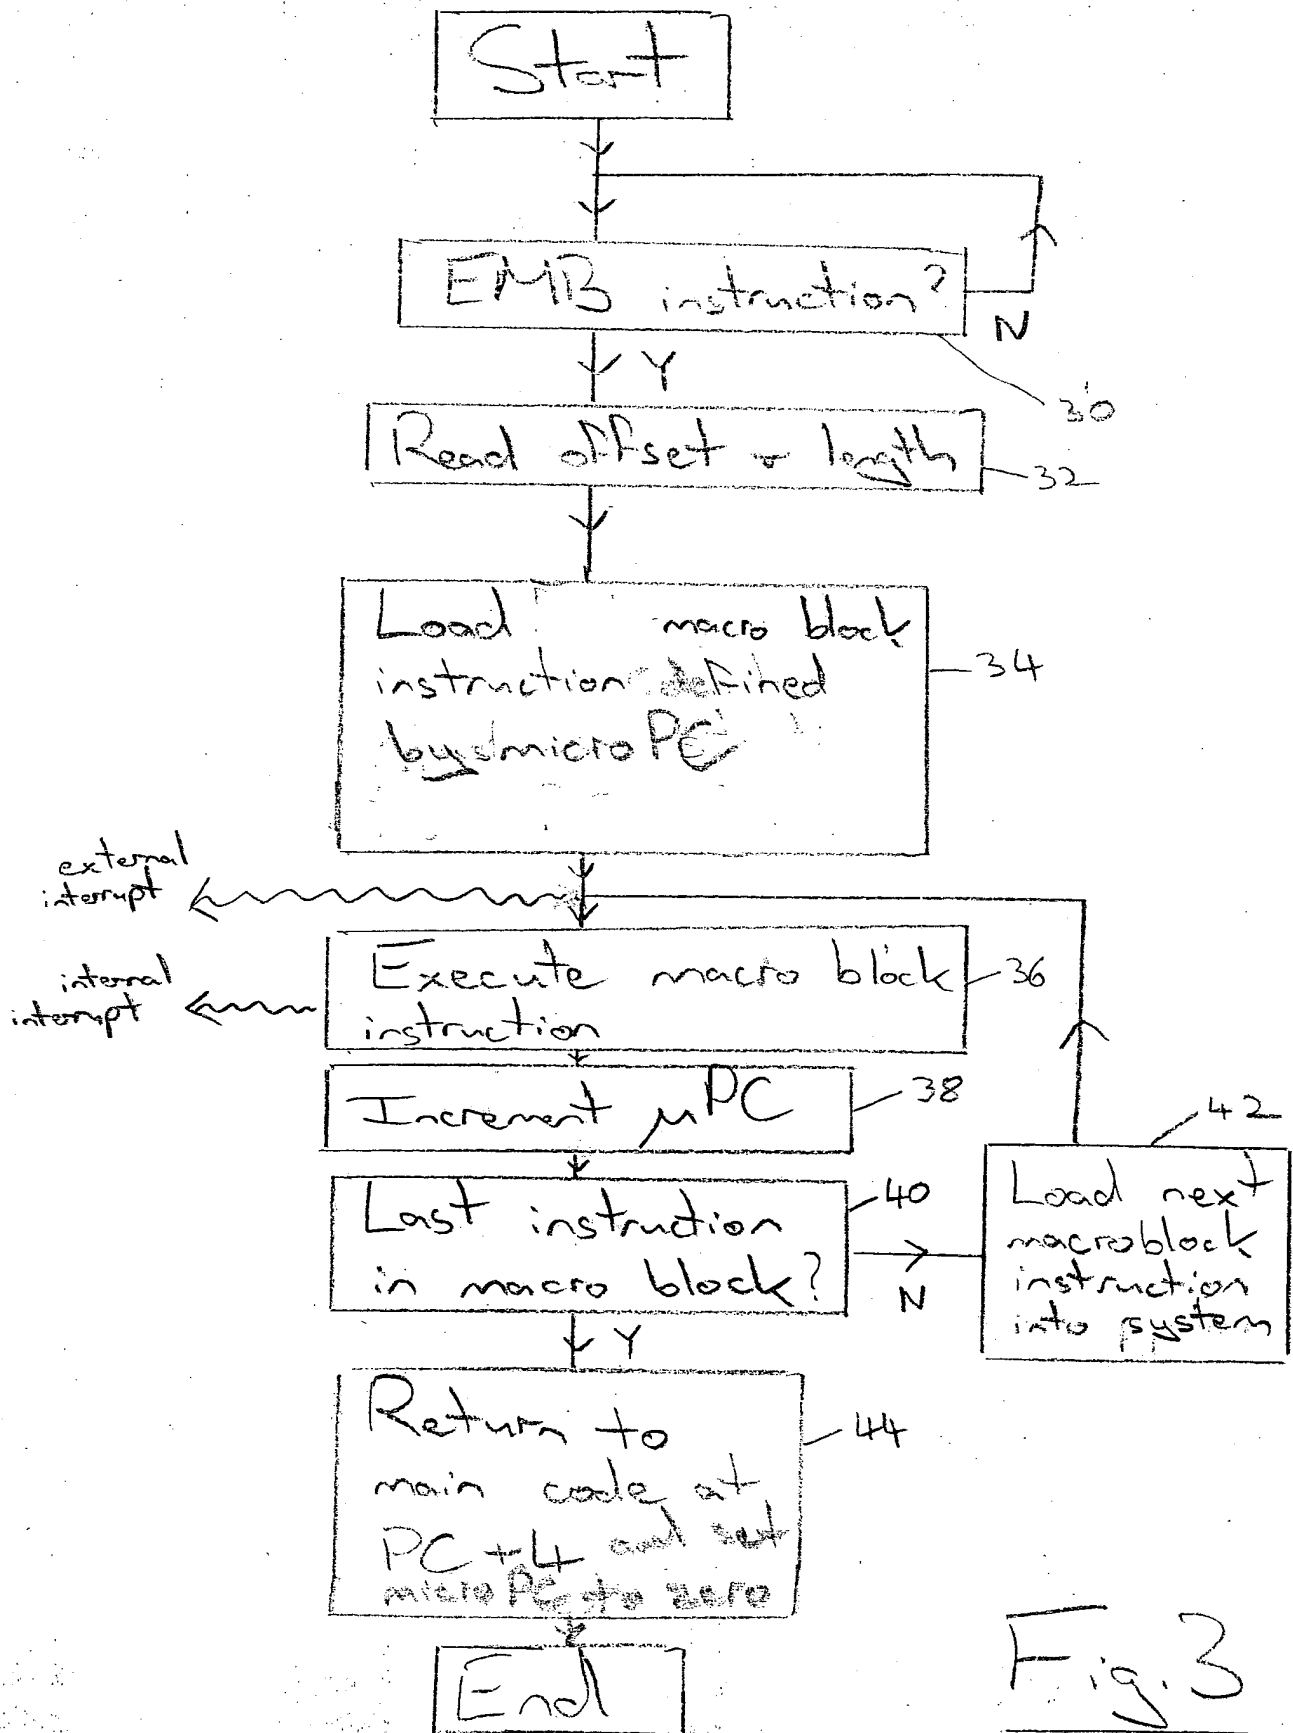 Start
EMB instruction?
N
30
Y
Read offset & length
32
Load macro block
instruction defined
by micro PC
34
external
interrupt
internal
interrupt
Execute macro block
instruction
36
Increment µPC
38
Last instruction
in macro block?
40
N
42
Load next
macroblock
instruction
into system
Y
Return to
main code at
PC+4 and set
micro PC to zero
44
End
Fig. 3